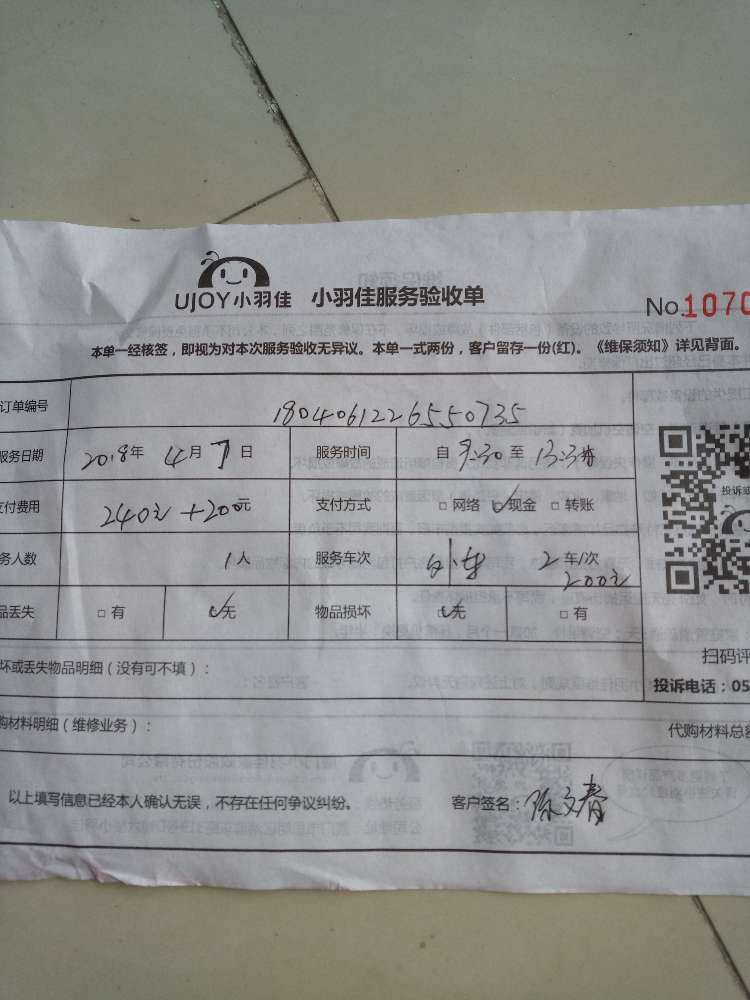 UJOY小羽佳 小羽佳服务验收单
No.1070
本单一经核签，即视为对本次服务验收无异议。本单一式两份，客户留存一份(红)。《维保须知》详见背面。
订单编号 1804061226550735
服务日期 2018年 4月 7日 服务时间 自 9:30 至 13:3
支付费用 240元+200元 支付方式 □网络 ☑现金 □转账
务人数 1人 服务车次 小车 2车/次
200元
品丢失 □有 ☑无 物品损坏 ☑无 □有
坏或丢失物品明细（没有可不填）：
扫码评
投诉电话：05
购材料明细（维修业务）： 代购材料总额
以上填写信息已经本人确认无误，不存在任何争议纠纷。 客户签名：陈文春
投诉或